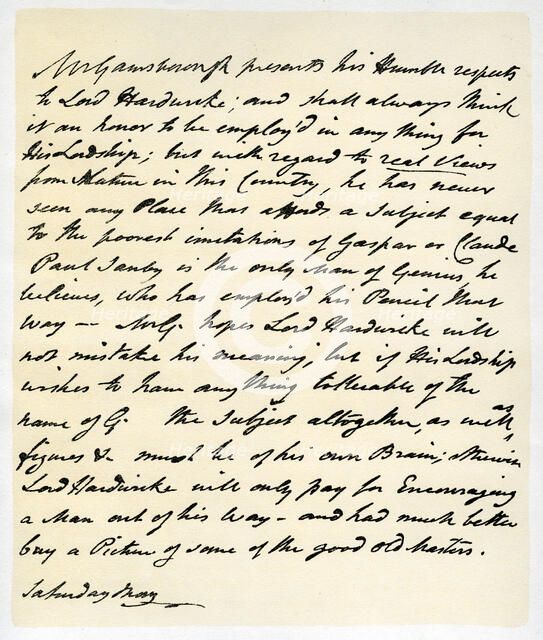 Mr Gainsborough presents his Humble respects
to Lord Hardwicke; and shall always think
it an honor to be employ'd in any thing for
His Lordship; but with regard to real Views
from Nature in this Country, he has never
seen any Place that affords a Subject equal
to the poorest imitations of Gaspar or Claude
Paul Sanby is the only Man of Genius, he
believes, who has employ'd his Pencil that
way — Mr G. hopes Lord Hardwicke will
not mistake his meaning, but if His Lordship
wishes to have any thing tollerable of the
name of G. the Subject altogether, as well as
figures &c must be of his own Brain; otherwise
Lord Hardwicke will only pay for Encouraging
a Man out of his way - and had much better
buy a Picture of some of the good old Masters.
Saturday Morg